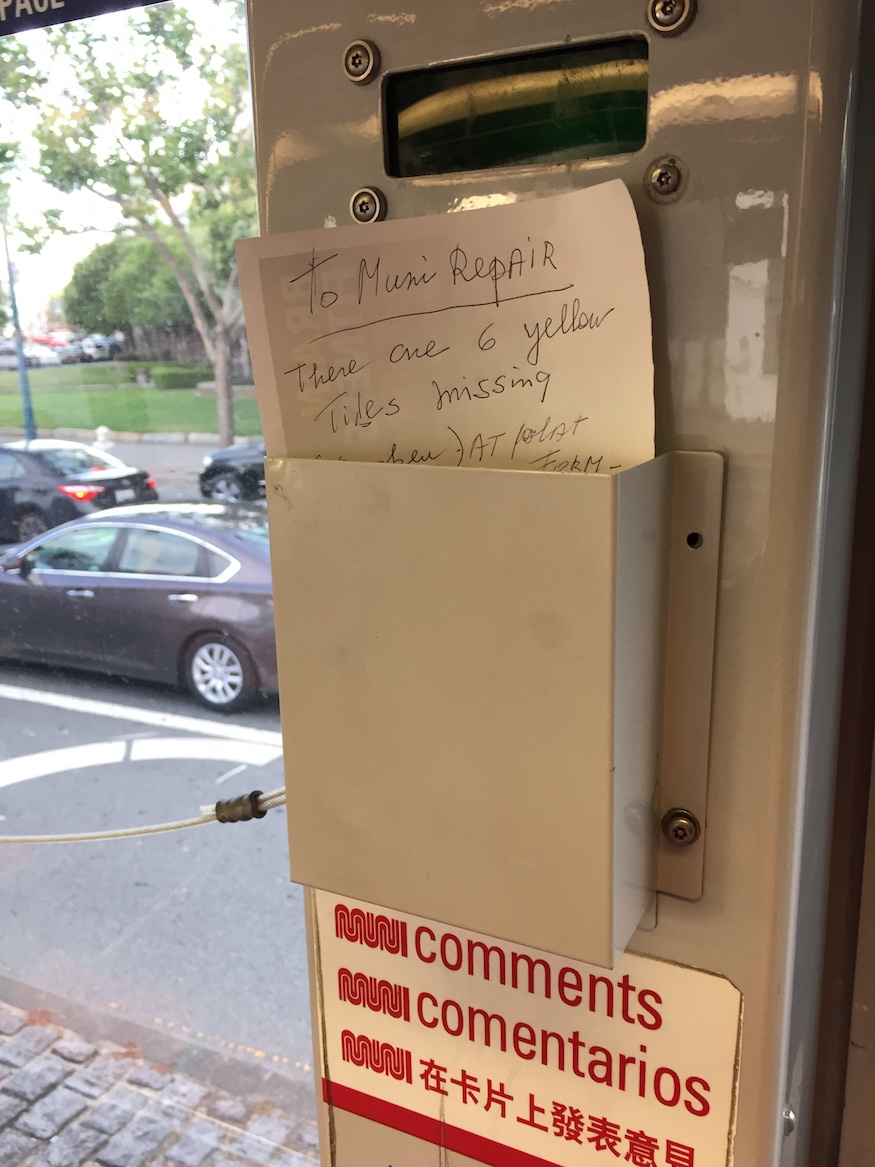 To Muni RepAIR
There are 6 yellow
Tiles missing
AT plat
FORM-
MUNI comments
MUNI comentarios
MUNI 在卡片上發表意見